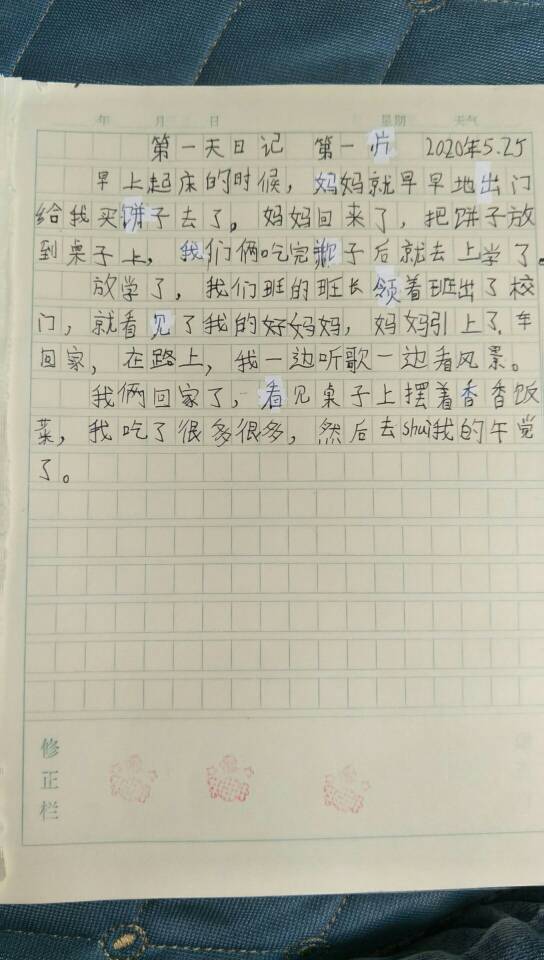 年 月 日 星期 天气
第一天日记 第一片 2020年5.25
早上起床的时候，妈妈就早早地出门
给我买饼子去了。妈妈回来了，把饼子放
到桌子上，我们俩吃完饼子后就去上学了。
放学了，我们班的班长领着班出了校
门，就看见了我的好妈妈，妈妈引上了车
回家，在路上，我一边听歌一边看风景。
我俩回家了，看见桌子上摆着香香饭
菜，我吃了很多很多，然后去shui我的午觉
了。
修正栏